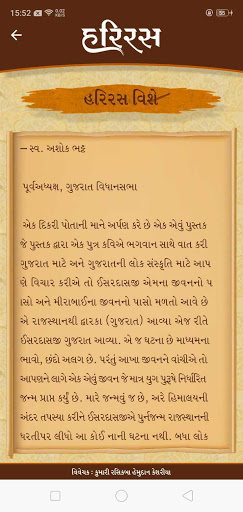 15:52
હરિરસ
હરિરસ વિશે
– સ્વ. અશોક ભટ્ટ
પૂર્વઅધ્યક્ષ, ગુજરાત વિધાનસભા
એક દિકરી પોતાની માને અર્પણ કરે છે એક એવું પુસ્તક
જે પુસ્તક દ્વારા એક પુત્ર કવિએ ભગવાન સાથે વાત કરી
ગુજરાત માટે અને ગુજરાતની લોક સંસ્કૃતિ માટે આપ
ણે વિચાર કરીએ તો ઈસરદાસજી એમના જીવનનો પ
ાસો અને મીરાબાઈના જીવનનો પાસો મળતો આવે છે
એ રાજસ્થાનથી દ્વારકા (ગુજરાત) આવ્યા એજ રીતે
ઈસરદાસજી ગુજરાત આવ્યા. એ જ ઘટના છે માધ્યમના
ભાવો, છંદો અલગ છે. પરંતું આખા જીવનને વાંચીએ તો
આપણને લાગે એક એવું જીવન જે માત્ર યુગ પુરૂષે નિર્ધારિત
જન્મ પ્રાપ્ત કર્યું છે. મારે જન્મવું જ છે, અરે હિમાલયની
અંદર તપસ્યા કરીને ઈસરદાસજીએ પુર્નજન્મ રાજસ્થાનની
ધરતીપર લીધો આ કોઈ નાની ઘટના નથી. બધા લોક
વિવેચક : કુમારી રસિકબા હેમુદાન કેશરીયા